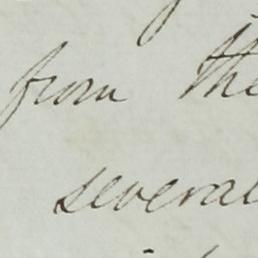 from the
several